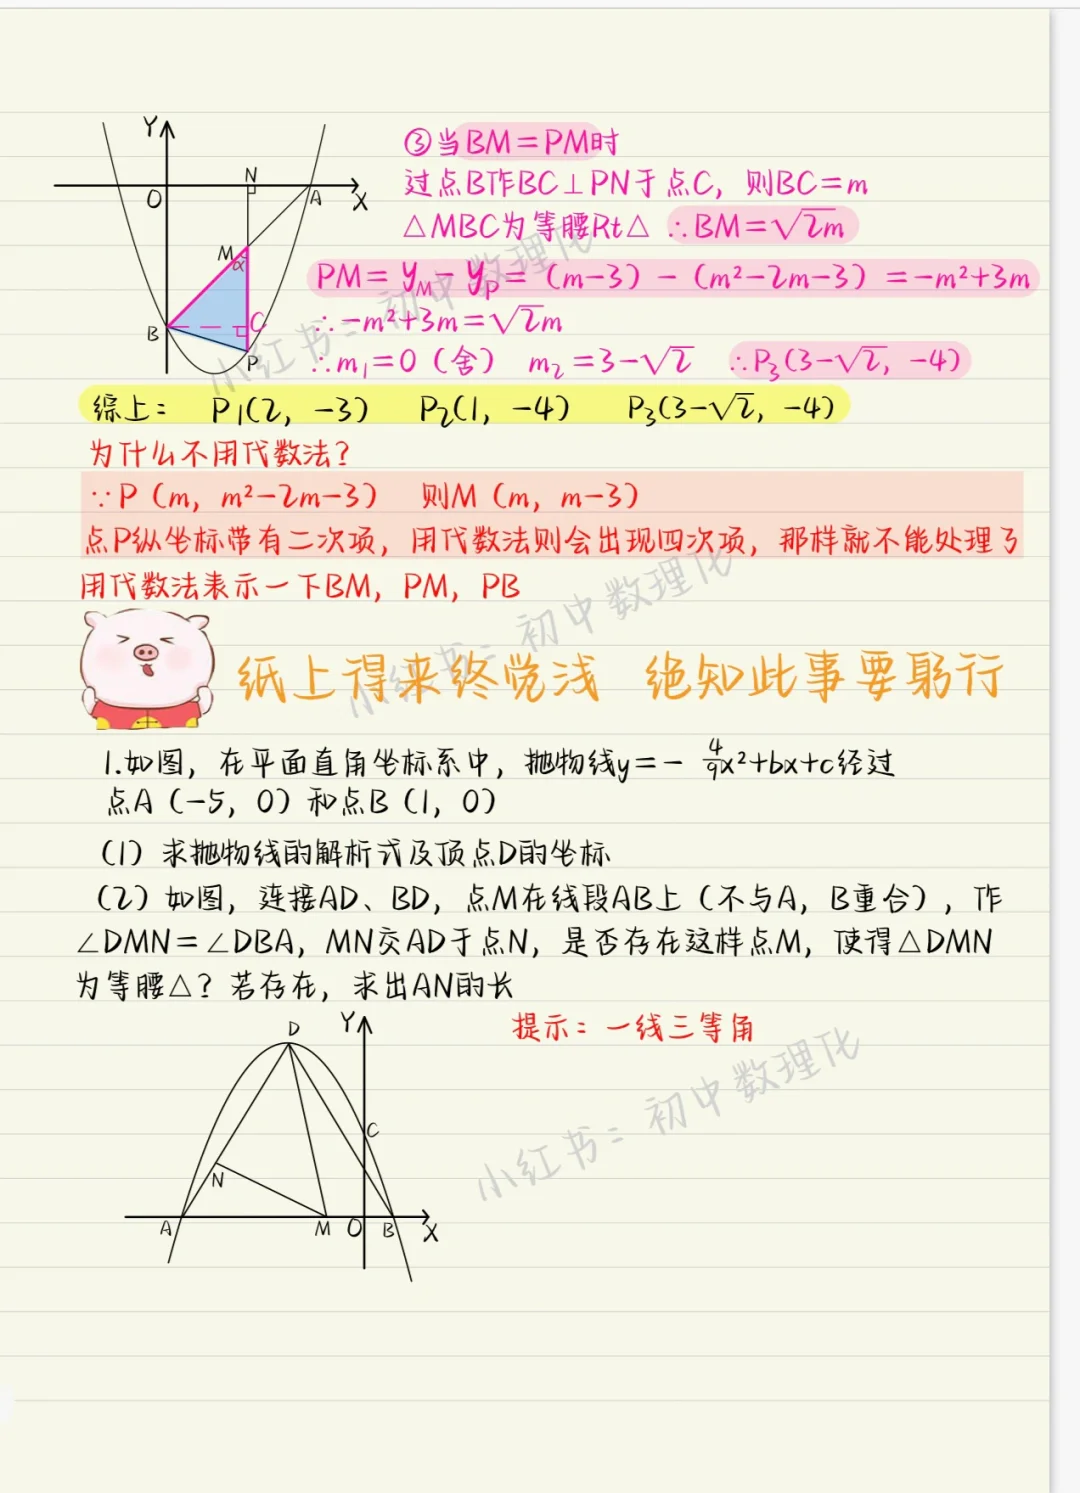 Y
N
O
A
X
M
α
B
C
P
③当BM=PM时
过点B作BC⊥PN于点C，则BC=m
△MBC为等腰Rt△ ∴BM=√2m
PM=y_M-y_P=(m-3)-(m²-2m-3)=-m²+3m
∴-m²+3m=√2m
∴m₁=0（舍） m₂=3-√2 ∴P₃(3-√2, -4)
小红书：初中数理化
综上： P₁(2, -3) P₂(1, -4) P₃(3-√2, -4)
为什么不用代数法？
∵P（m, m²-2m-3） 则M（m, m-3）
点P纵坐标带有二次项，用代数法则会出现四次项，那样就不能处理了
用代数法表示一下BM，PM，PB
小红书：初中数理化
纸上得来终觉浅 绝知此事要躬行
1.如图，在平面直角坐标系中，抛物线y=-4/9x²+bx+c经过
点A（-5，0）和点B（1，0）
（1）求抛物线的解析式及顶点D的坐标
（2）如图，连接AD、BD，点M在线段AB上（不与A，B重合），作
∠DMN=∠DBA，MN交AD于点N，是否存在这样点M，使得△DMN
为等腰△？若存在，求出AN的长
提示：一线三等角
小红书：初中数理化
D
Y
C
N
A
M
O
B
X